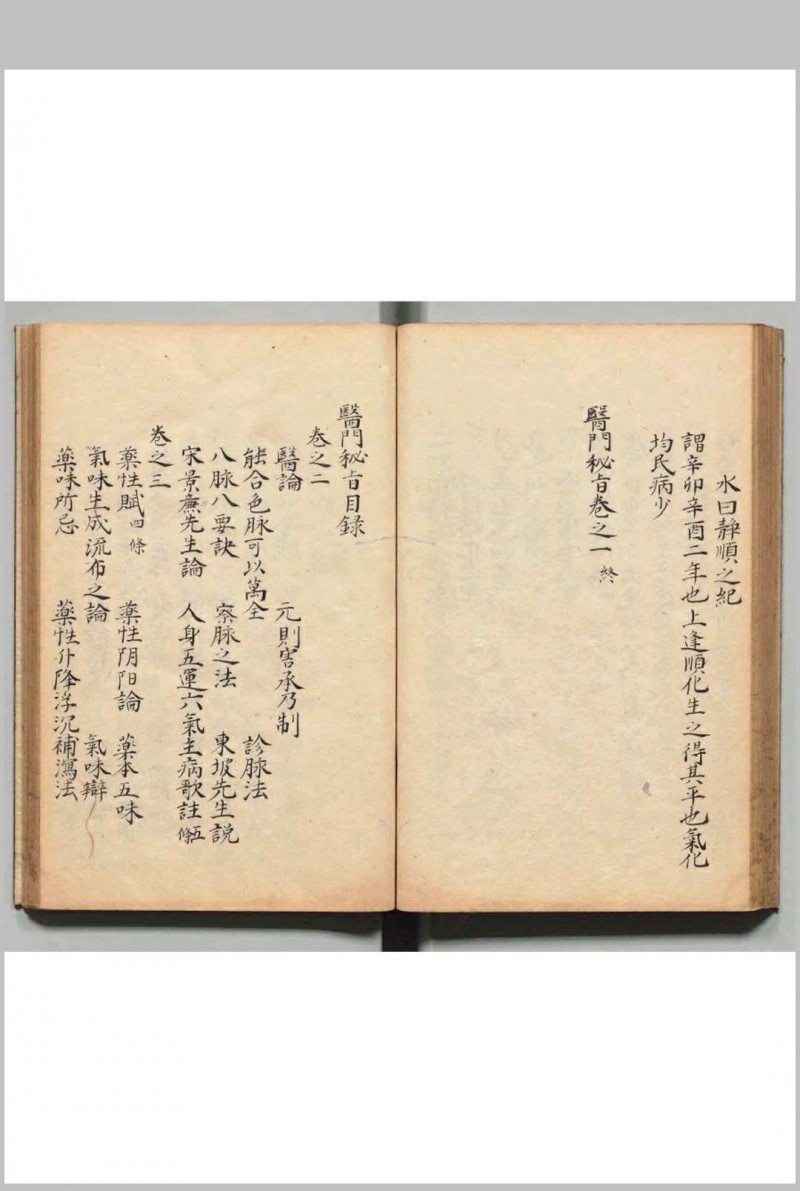 水曰靜順之紀
謂辛卯辛酉二年也上逢順化生之得其平也氣化
均民病少
醫門秘旨卷之一 終
醫門秘旨目録
卷之二
醫論 元則害承乃制
能合色脉可以萬全 診脉法
八脉八要訣 察脉之法 東坡先生説
宋景㢘先生論 人身五運六氣主病歌註 五條
卷之三
藥性賦 四條 藥性阴阳論 藥本五味
氣味生成流布之論 氣味辯
藥味所忌 藥性升降浮沉補瀉法